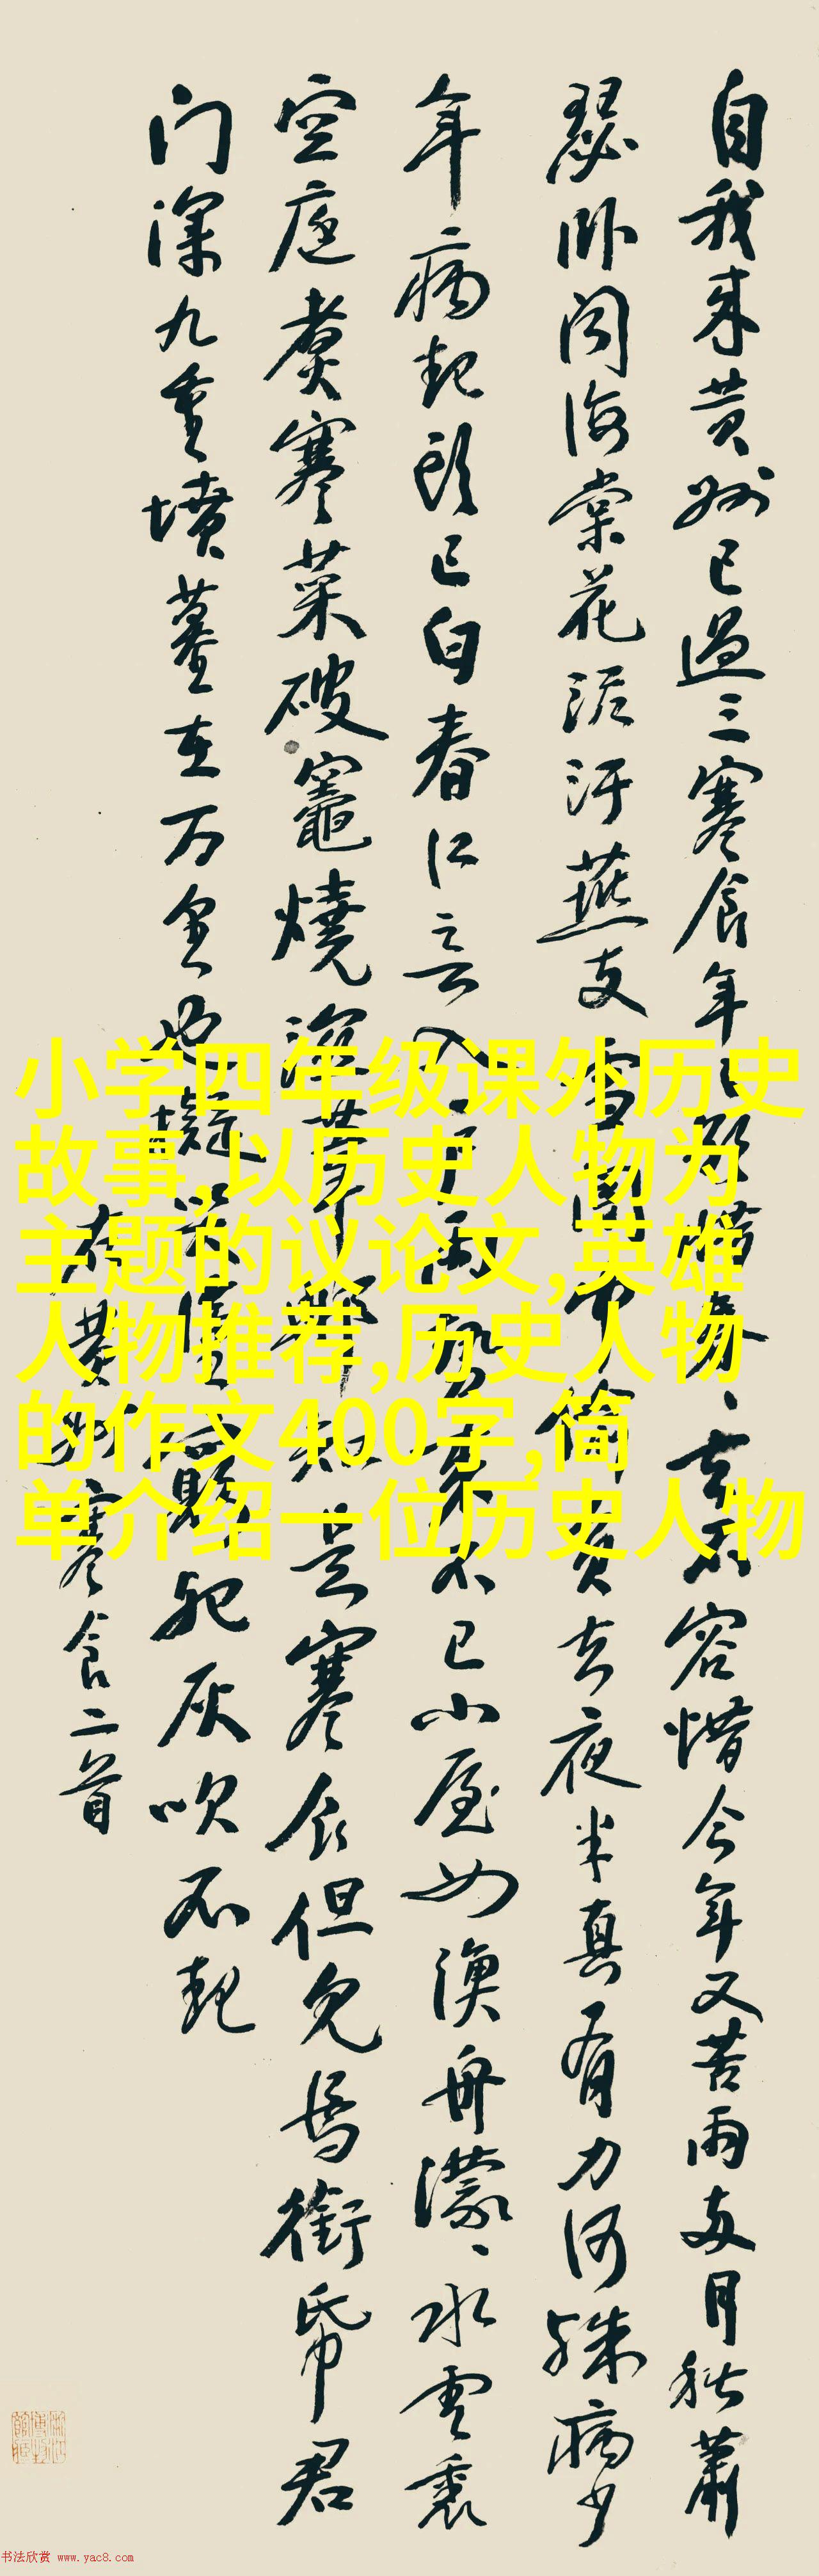 自我来黄州已過三寒食年〻欲惜春〻去不容惜今年又苦雨两月秋蕭
瑟卧闻海棠花泥汙燕支雪闇中偷負去夜半真有力何殊病少
年病起頭已白春江入户雨勢来不已小屋如漁舟濛〻水雲裏
空庖煮寒菜破竈燒溼葦那知是寒食但見烏銜帋君
门深九重墳墓在万里也擬哭塗窮死灰吹不起
右黄州寒食二首
小学四年级课外历史
故事,以历史人物为
主题的议论文,英雄
人物推荐,历史人物
的作文400字,简
单介绍一位历史人物
书法欣赏 www.yac8.com